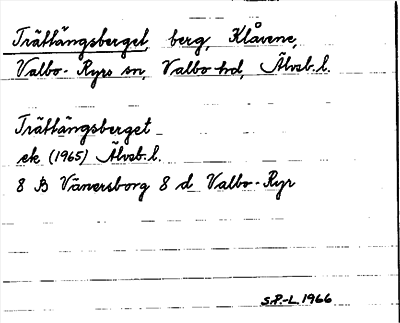 Trättängsberget, berg, Klåvene,
Valbo-Ryrs sn, Valbo hd, Älvsb. l.
Trättängsberget
ek (1965) Älvsb. l.
8 B Vänersborg 8 d Valbo-Ryr
S.P.-L. 1966